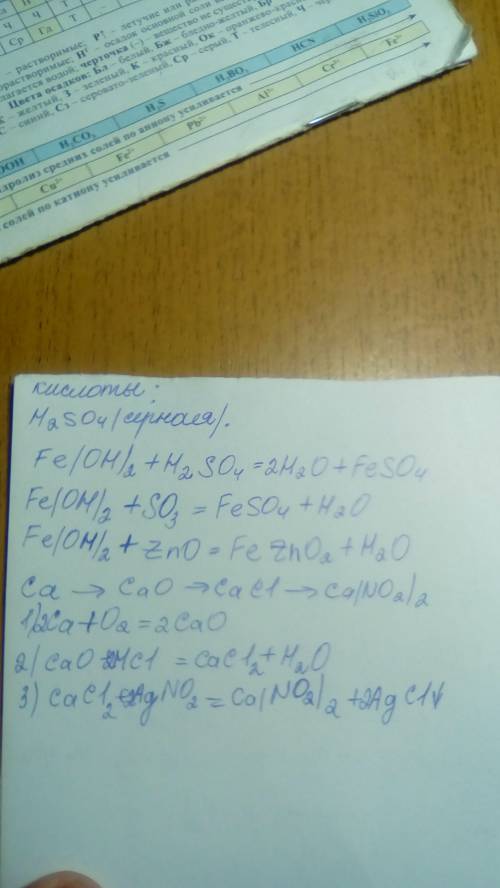 Ч Т
Ср Гл Т –
– растворимые, Р↑ – летучие или
лагается водой, черточка (–) – вещество не сущес
Цвета осадков: Бл – белый, Бж – бледно-желтый, Бр
К – желтый, З – зеленый, К – красный, Ок – оранжево-крас
С – синий, Сз – серовато-зеленый, Ср – серый, Т – телесный, Ч – чер
OOH H₂CO₃ H₂S H₃BO₃ HCN H₂SiO₃
идролиз средних солей по аниону усиливается
Cu²⁺ Fe²⁺ Pb²⁺ Al³⁺ Cr³⁺ Fe³⁺
солей по катиону усиливается
кислоты:
H₂SO₄ (серная).
Fe(OH)₂ + H₂SO₄ = 2H₂O + FeSO₄
Fe(OH)₂ + SO₃ = FeSO₄ + H₂O
Fe(OH)₂ + ZnO = FeZnO₂ + H₂O
Ca → CaO → CaCl → Ca(NO₂)₂
1) 2Ca + O₂ = 2CaO
2) CaO + 2HCl = CaCl₂ + H₂O
3) CaCl₂ + 2AgNO₂ = Ca(NO₂)₂ + 2AgCl↓